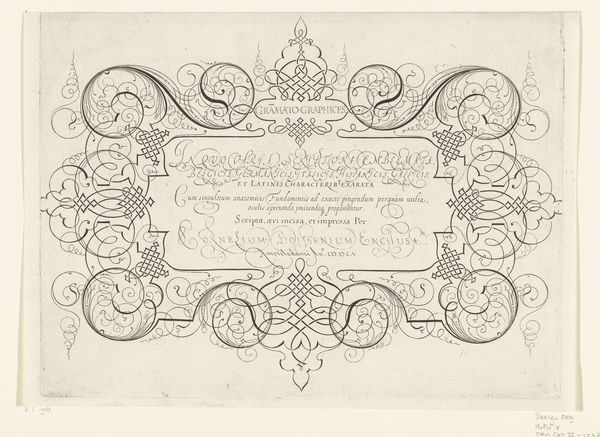 GRAMATO-GRAPHICES
IN QUO VARIA SCRIPTORÆ EMBLEMATA
BELGICIS, GERMANICIS, ITALICIS, HISPANICIS, GALLICIS,
ET LATINIS CHARACTERIBꝰ EXARATA
Cum singulorum anatomicis Fundamentis ad exactè pingendum perquàm utilia,
oculis speculanda imitandaq proponuntur.
Scripta, æri incisa, et impressa Per
CORNELIUM BOISSENIUM ENCHUSA.
Amstelodami Anº. CIƆ.IƆC.V